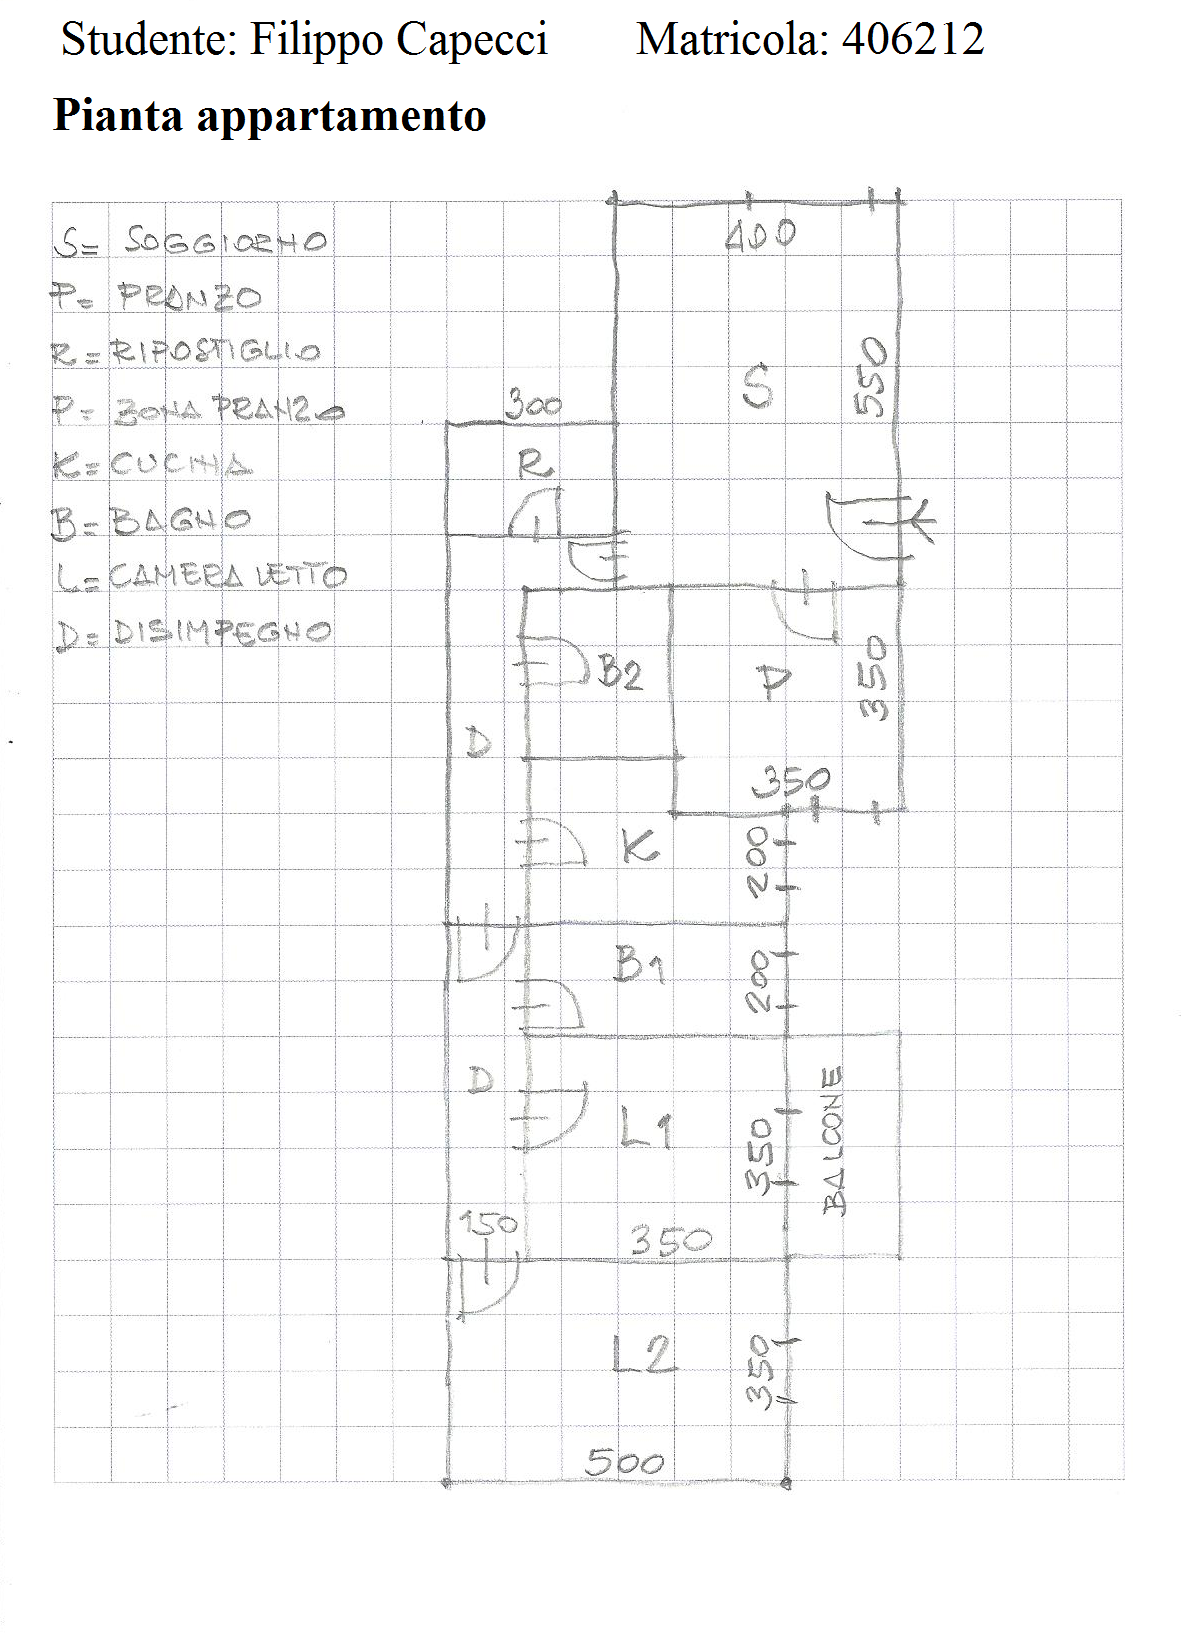 Studente: Filippo Capecci Matricola: 406212
Pianta appartamento
S= SOGGIORNO
P= PRANZO
R= RIPOSTIGLIO
P= ZONA PRANZO
K= CUCINA
B= BAGNO
L= CAMERA LETTO
D= DISIMPEGNO
400
S
550
300
R
B2
P
350
D
350
K
200
B1
200
D
L1
350
BALCONE
150
350
L2
350
500